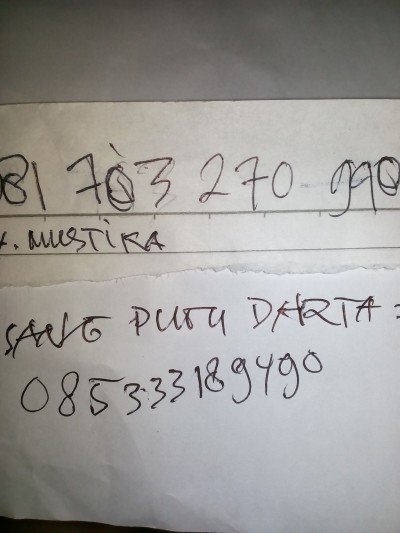 081 703 270 990
. MUSTIKA
SANG PUTU DARTA =
085333189490